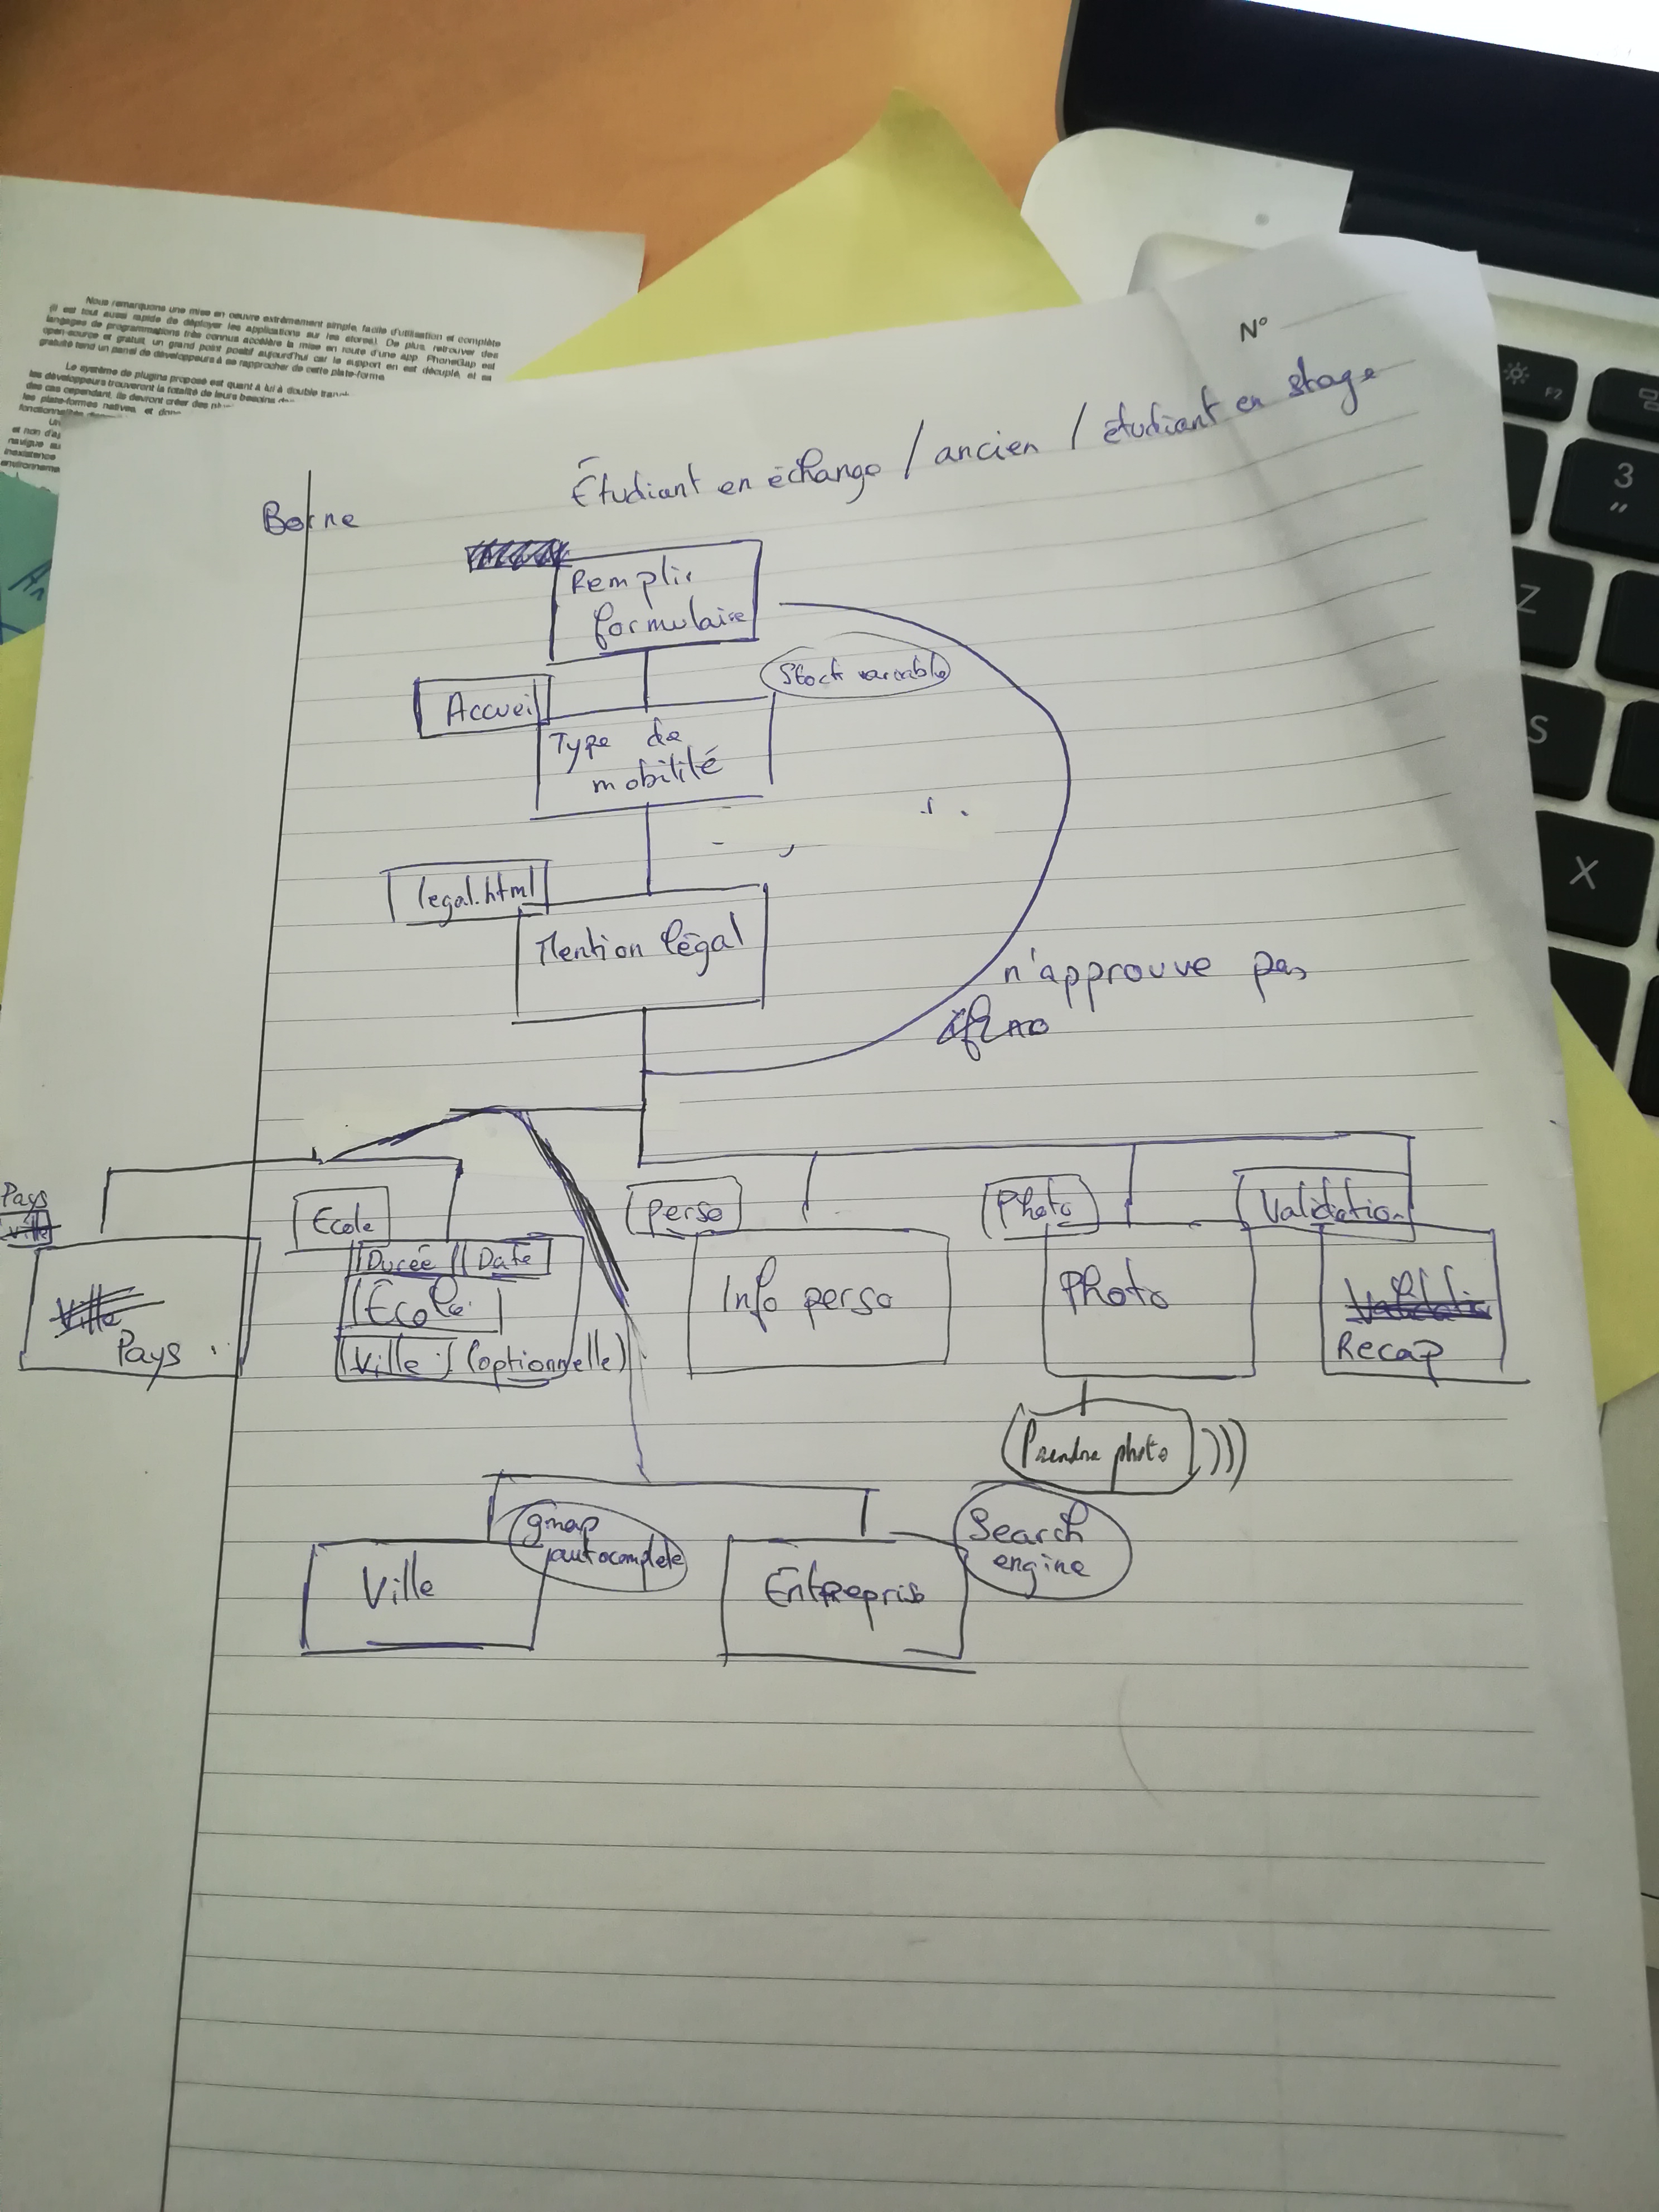 Nous remarquons une mise en oeuvre extrêmement simple, facile d'utilisation et complète
(il est tout aussi rapide de déployer les applications sur les stores). De plus, retrouver des
langages de programmations très connus accélère la mise en route d'une app. PhoneGap est
open-source et gratuit, un grand point positif aujourd'hui car le support en est décuplé, et sa
gratuité tend un panel de développeurs à se rapprocher de cette plate-forme.
Le système de plugins proposé est quant à lui à double
les développeurs trouveront la totalité de leurs besoins
des cas cependant, ils devront créer des
les plate-formes natives, et donc
N°
Étudiant en échange / ancien / étudiant en stage
Borne
Remplir
formulaire
Stock variable
Accueil
Type de
mobilité
legal.html
Mention légal
n'approuve pas
Pays
Ville
Ecole
Perso
Photo
Validation
Durée Date
École
Ville (optionnelle)
Ville
Pays
Info perso
Photo
Recap
Prendre photo
gmap
autocomplete
Search
engine
Ville
Entrepris
F2
3
"
Z
S
X